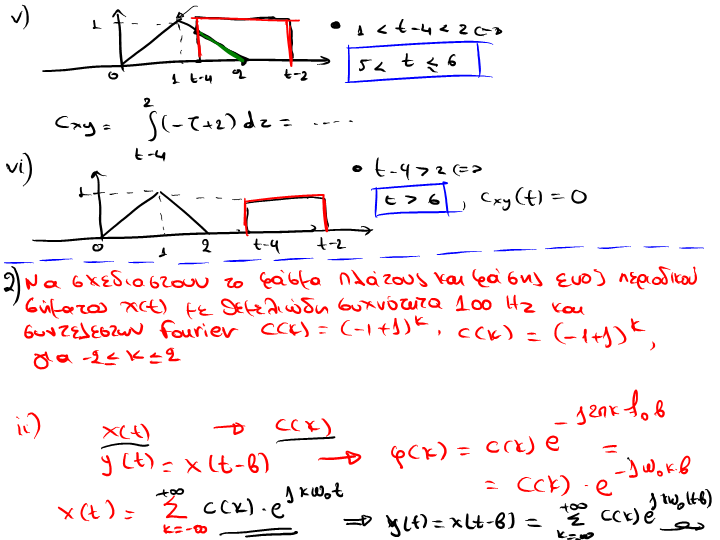 v)
1
0 1 t-4 2 t-2
• 1 < t-4 < 2 <=>
5 < t ≤ 6
Cxy = ∫_{t-4}^{2} (-τ+2) dτ = .....
vi)
1
0 1 2 t-4 t-2
• t-4 > 2 <=>
t > 6, Cxy(t) = 0
2) Να σχεδιαστουν το φάσμα πλάτους και φάσης ενος περιοδικού
σήματος x(t) με θεμελιώδη συχνότητα 100 Hz και
συντελεστων fourier C(k) = (-1+j)^k, C(k) = (-1+j)^k,
για -2 ≤ k ≤ 2
ii)
x(t) → C(k)
y(t) = x(t-b) → φ(k) = C(k) e^{-j2πk f₀ b} =
= C(k) · e^{-jω₀kb}
x(t) = Σ_{k=-∞}^{+∞} C(k) · e^{jkω₀t} => y(t) = x(t-b) = Σ_{k=-∞}^{+∞} C(k) e^{jkω₀(t-b)}